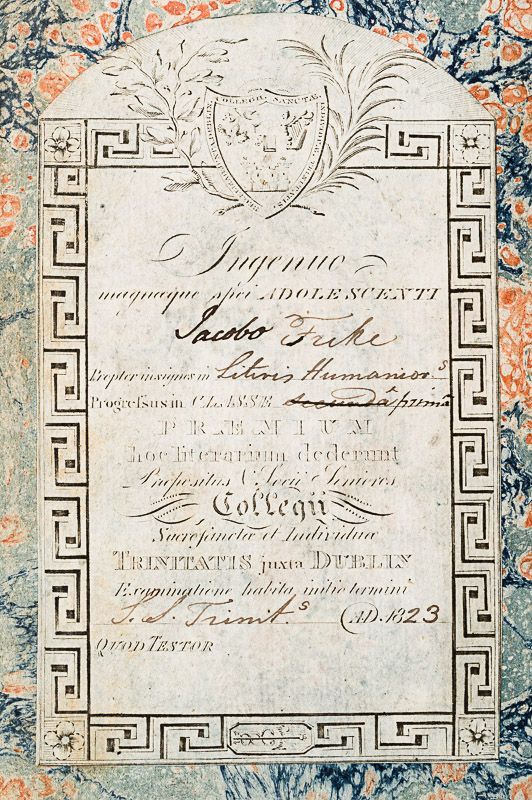 COLLEGII SANCTÆ
Ingenuo
magnaeque spei ADOLESCENTI
Jacobo Fuke
Propter insignes in Literis Humanior.s
Progressus in CLASSE secundâ primâ
PRÆMIUM
hoc literarium dederunt
Præpositus & Socii Seniores
Collegii
Sacrosanctæ et Individuæ
TRINITATIS juxta DUBLIN
Examinatione habita initio termini
S.S. Trinit.s (AD. 1823
QUOD TESTOR